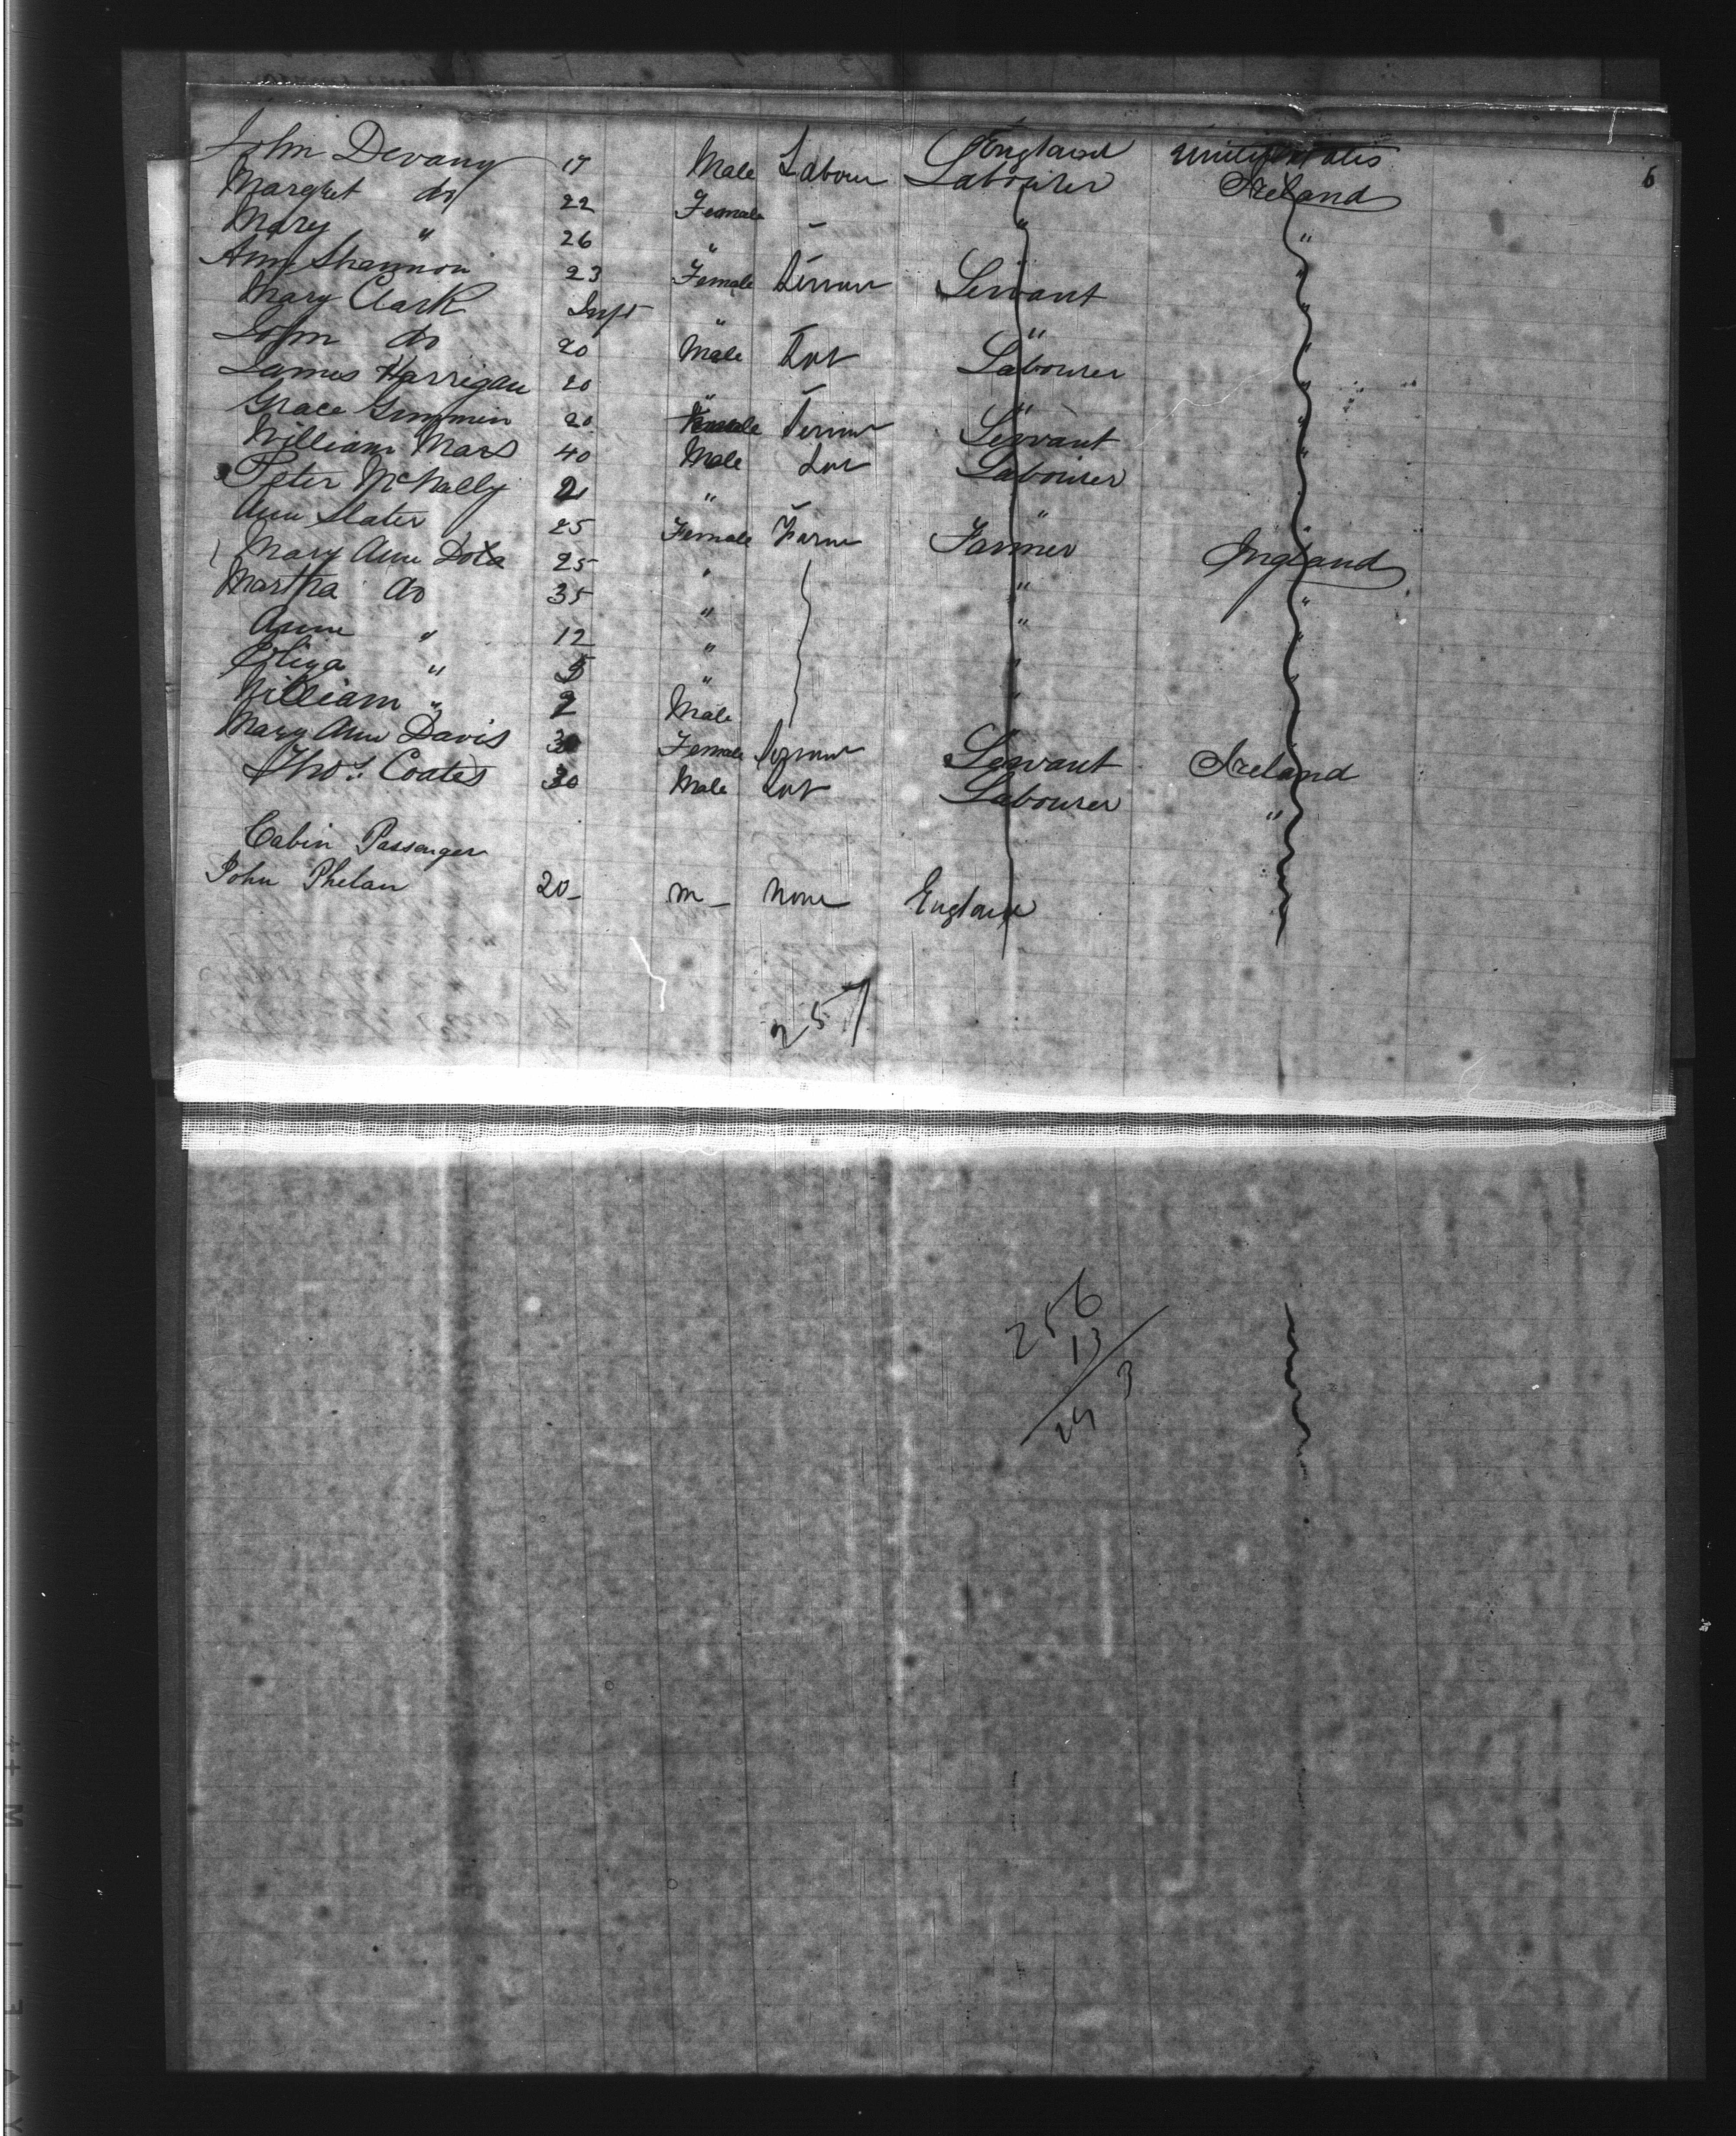 England United States
John Devany 17 Male Labour Labourer Ireland 6
Margret do 22 Female " "
Mary " 26 " "
Ann Shannon 23 Female Servant "
Mary Clark Inft " " "
John do 20 Male Labourer "
James Harrigan 20 " " "
Grace 20 Female Servant "
William Mars 40 Male Labourer
Peter McNally " " "
Ann Slater 25 Female Farmer England
Mary Ann 25 " " "
Martha do 35 " " "
Anne " 12 " "
Eliza " " "
William " Male
Mary Ann Davis Female Servant Ireland
Thos. Coates 30 Male Labourer "
Cabin Passenger
John Phelan 20 - m - none England
257
256
13
243